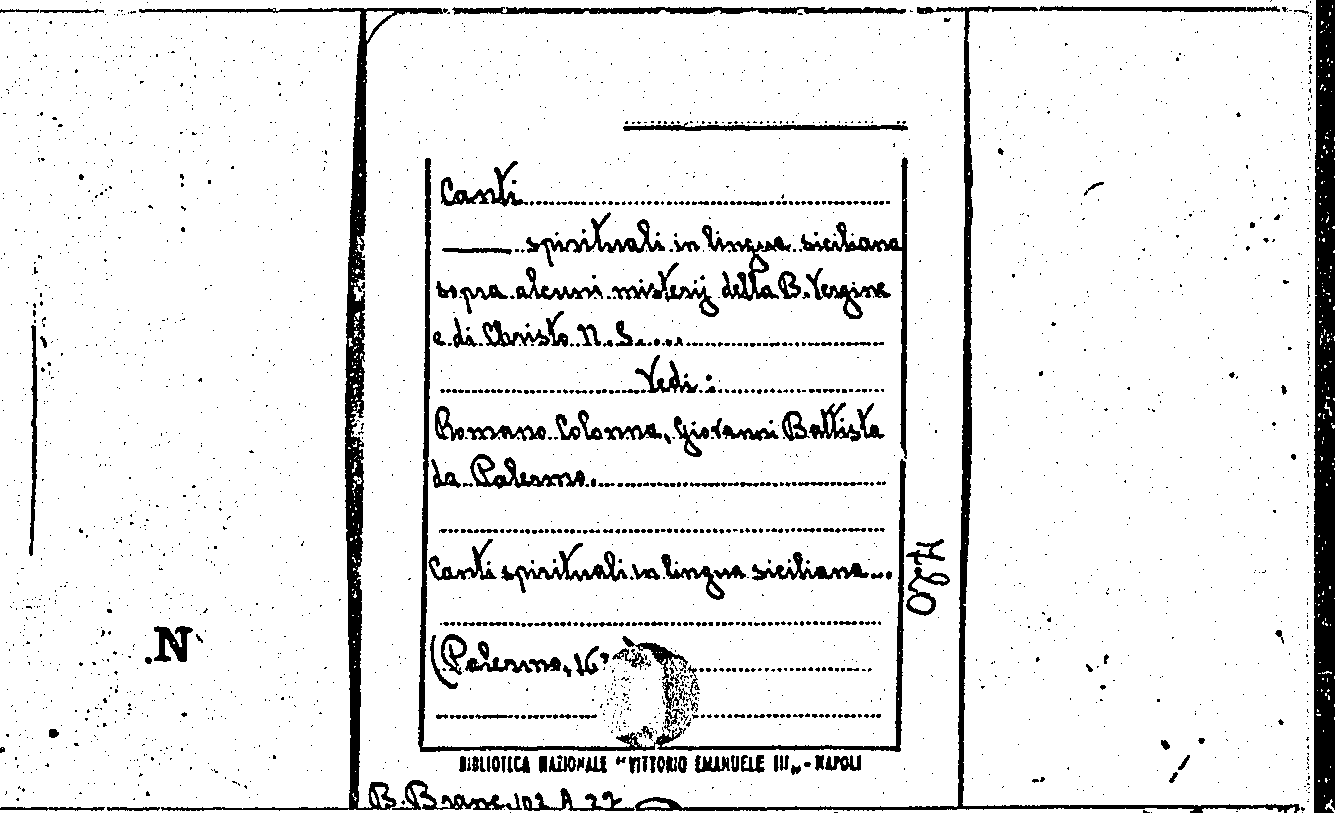 Canti
spirituali in lingua siciliana
sopra alcuni misterij della B. Vergine
e di Christo N. S.....
Vedi:
Romano Colonna, Giovanni Battista
da Palermo.
Canti spirituali in lingua siciliana...
(Palermo, 16
BIBLIOTECA NAZIONALE "VITTORIO EMANUELE III„ - NAPOLI
B. Branc. 102 A 27
420
.N